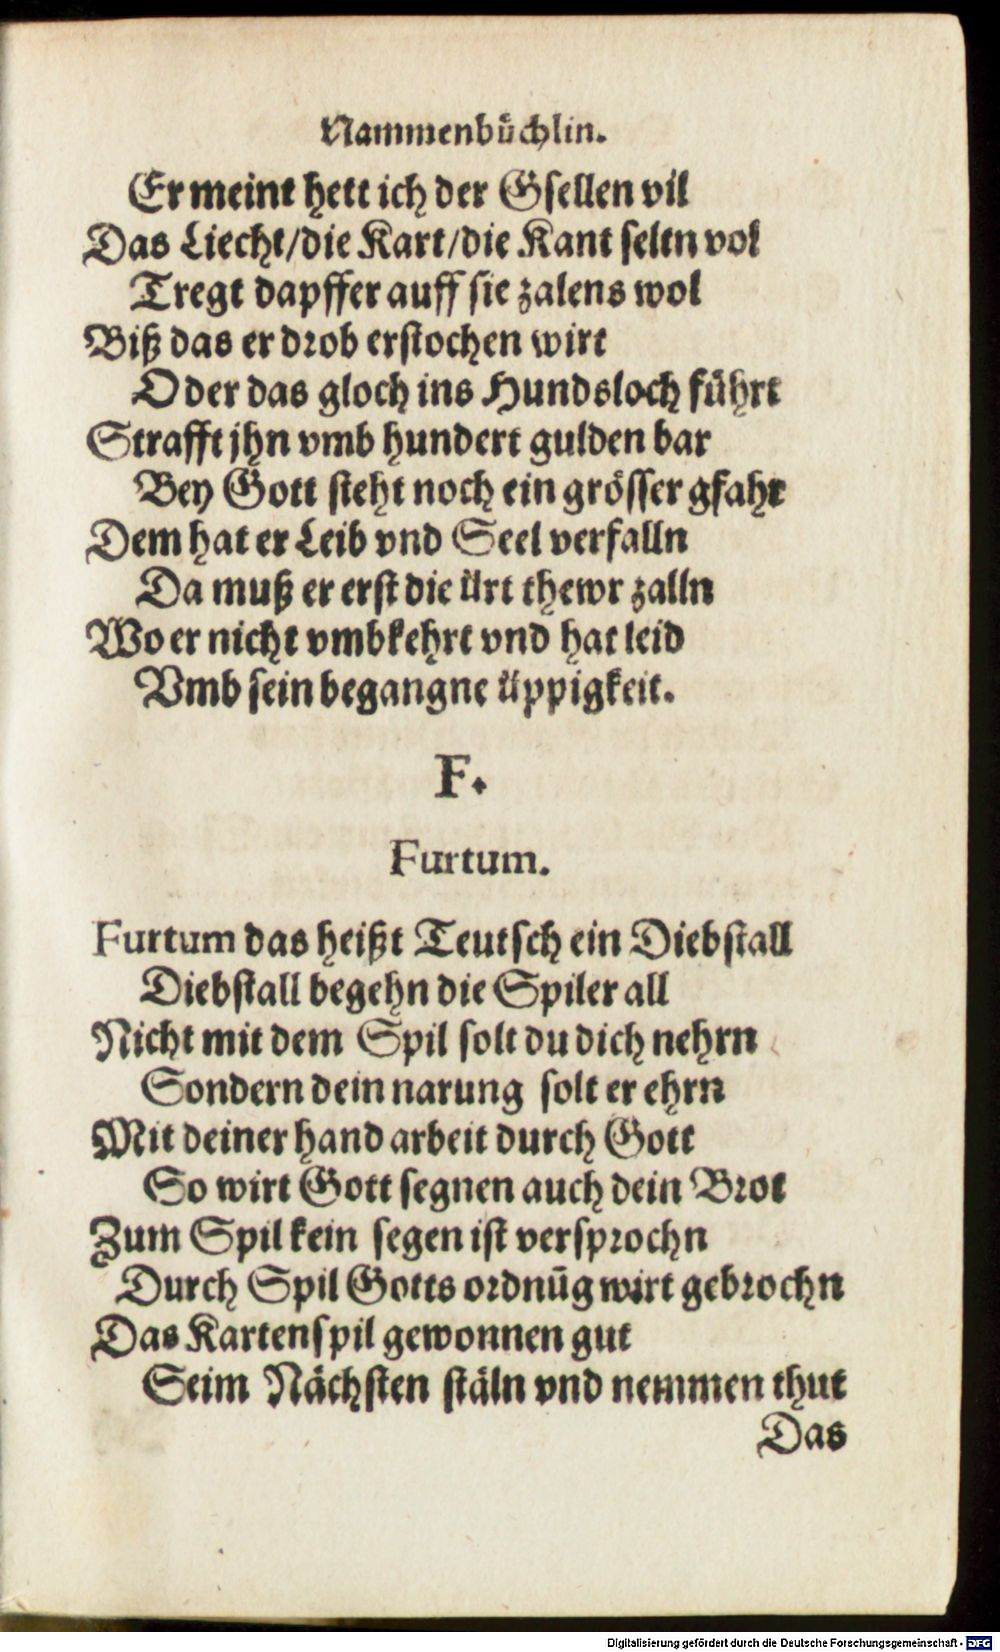 Nammenbüchlin.
Er meint hett ich der Gsellen vil
Das Liecht/die Kart/die Kant seltn vol
Tregt dapffer auff sie zalens wol
Biß das er drob erstochen wirt
Oder das gloch ins Hundsloch führt
Strafft jhn vmb hundert gulden bar
Bey Gott steht noch ein grösser gfahr
Dem hat er Leib vnd Seel verfalln
Da muß er erst die ürt thewr zalln
Wo er nicht vmbkehrt vnd hat leid
Vmb sein begangne üppigkeit.
F.
Furtum.
Furtum das heißt Teutsch ein Diebstall
Diebstall begehn die Spiler all
Nicht mit dem Spil solt du dich nehrn
Sondern dein narung solt er ehrn
Mit deiner hand arbeit durch Gott
So wirt Gott segnen auch dein Brot
Zum Spil kein segen ist versprochn
Durch Spil Gotts ordnūg wirt gebrochn
Das Kartenspil gewonnen gut
Seim Nächsten stäln vnd nemmen thut
Das
Digitalisierung gefördert durch die Deutsche Forschungsgemeinschaft - DFG